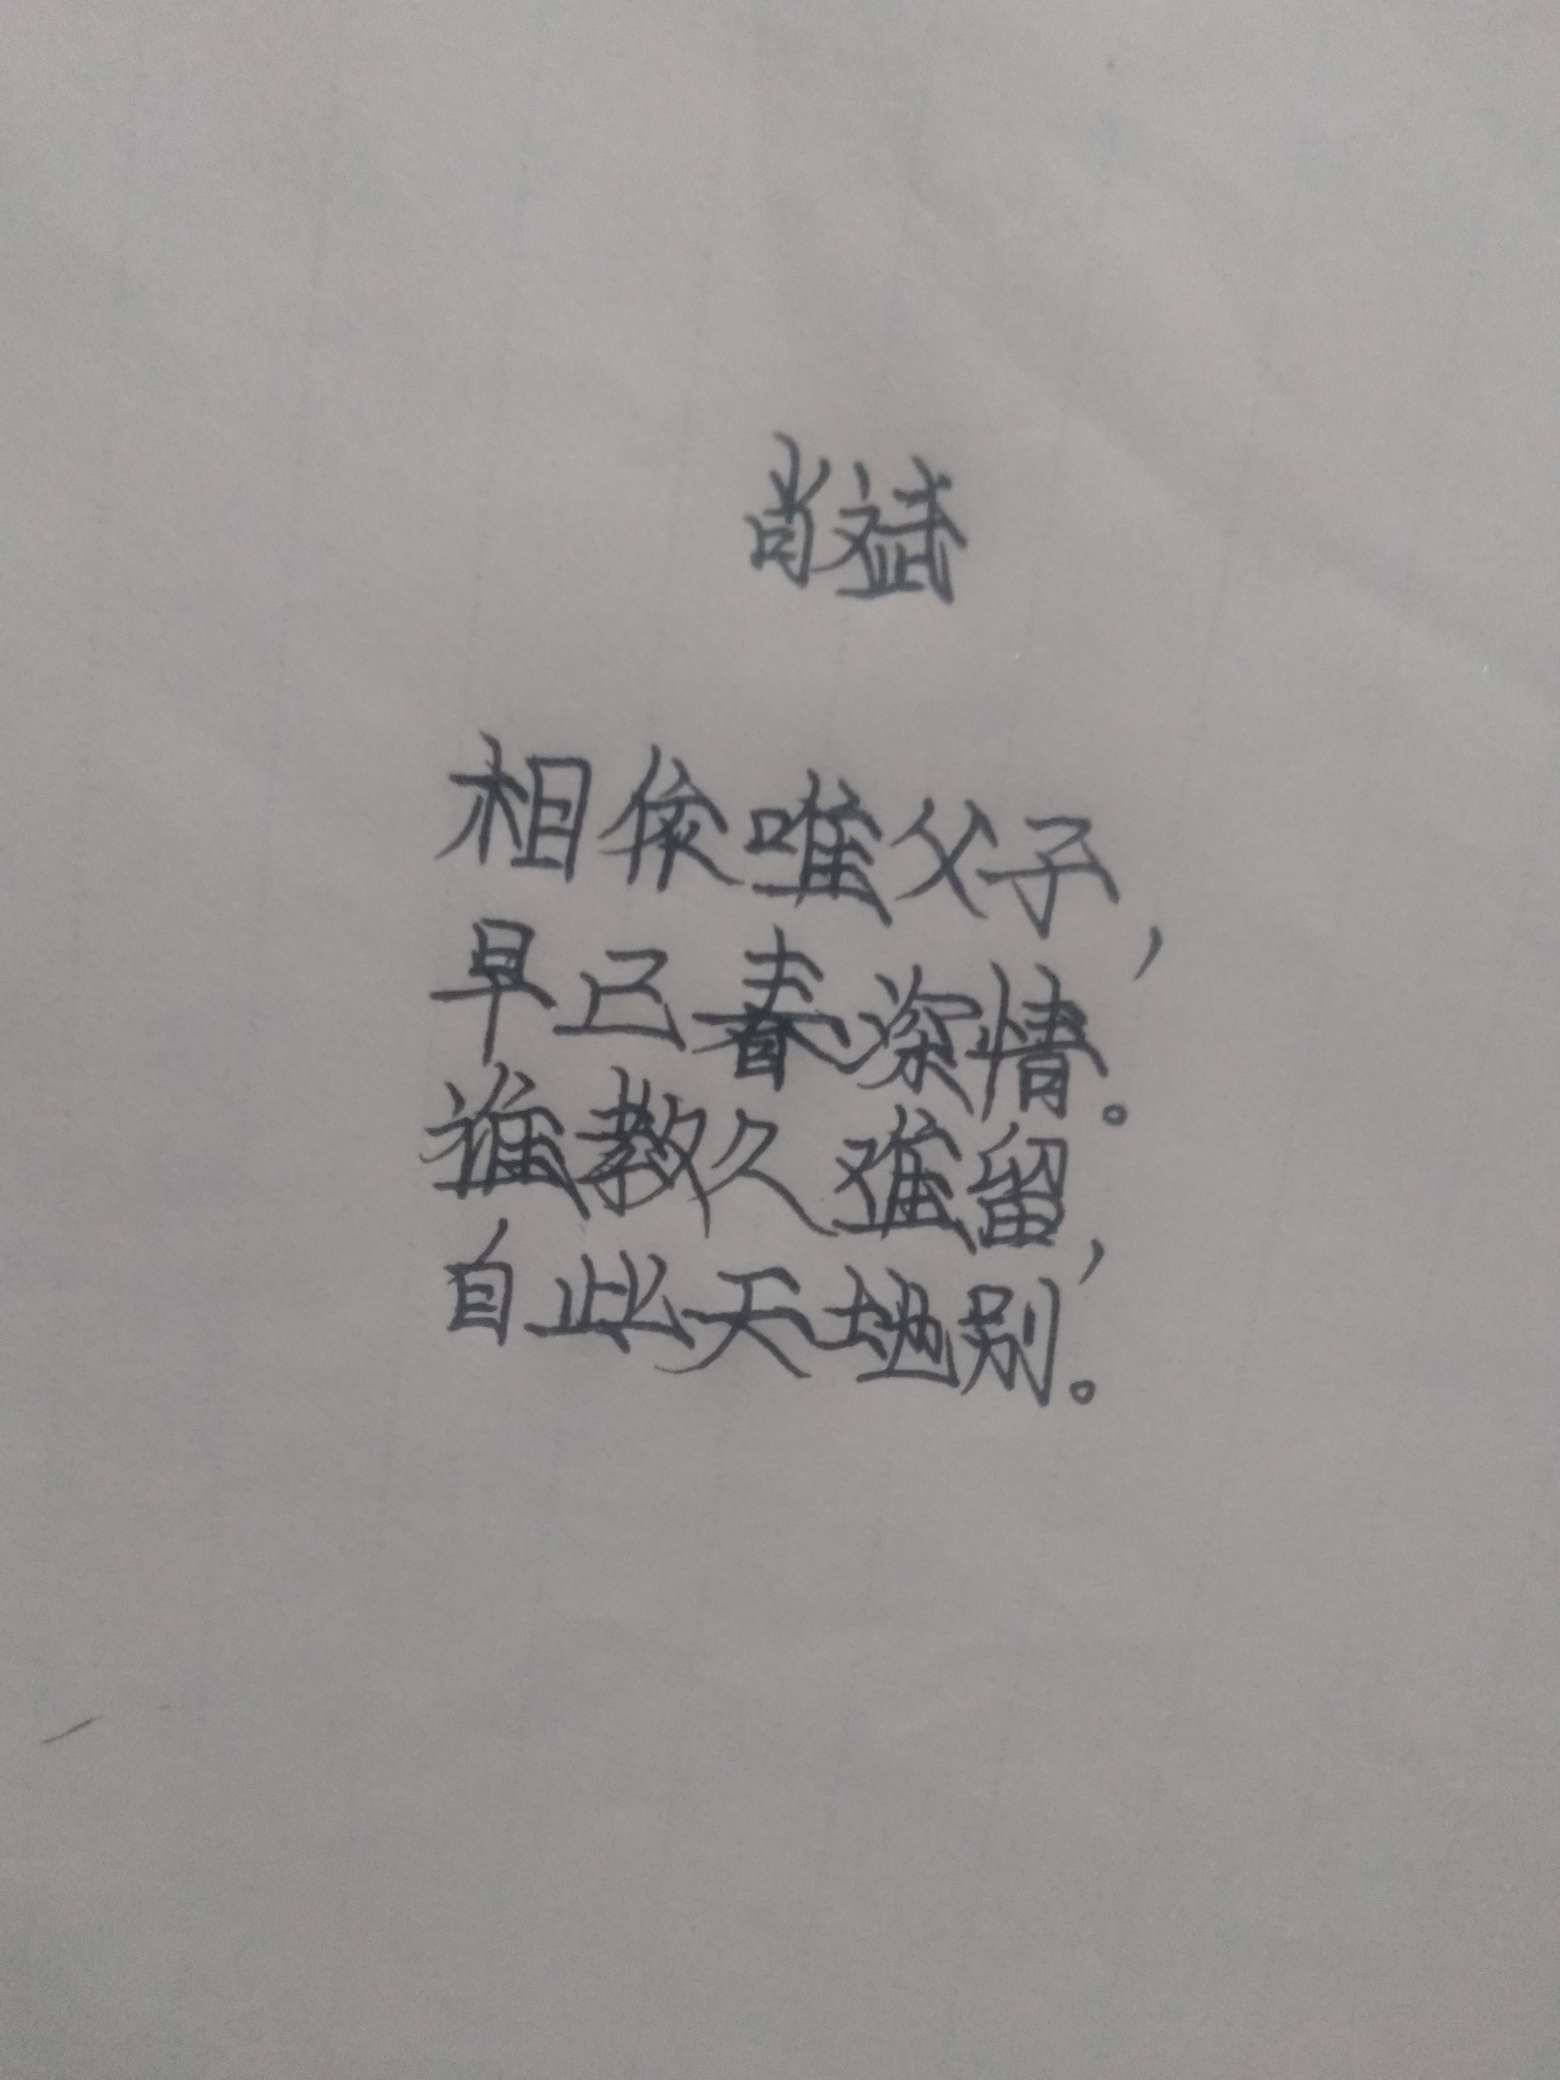 尚斌
相依唯父子，
早已春深情。
谁教久难留，
自此天地别。